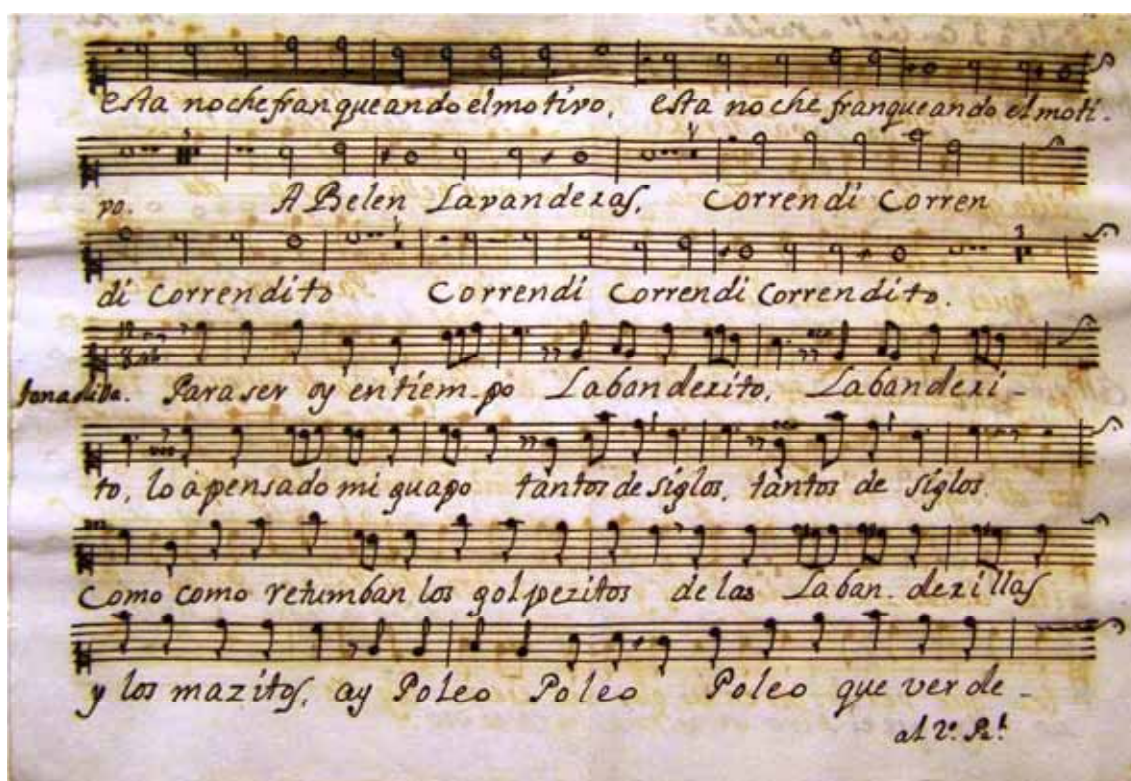 esta noche franqueando el motivo, esta noche franqueando el moti-
vo. A Belen Lavanderas, Correndi Corren
di Correndito Correndi Correndi Correndito.
12
8
tonadilla. Para ser oy en tiem-po Labanderito, Labanderi-
to, lo a pensado mi guapo tantos de siglos, tantos de siglos.
Como como retumban los golpezitos de las Laban-derillas
y los mazitos, ay Poleo Poleo Poleo que ver de-
al 2º.